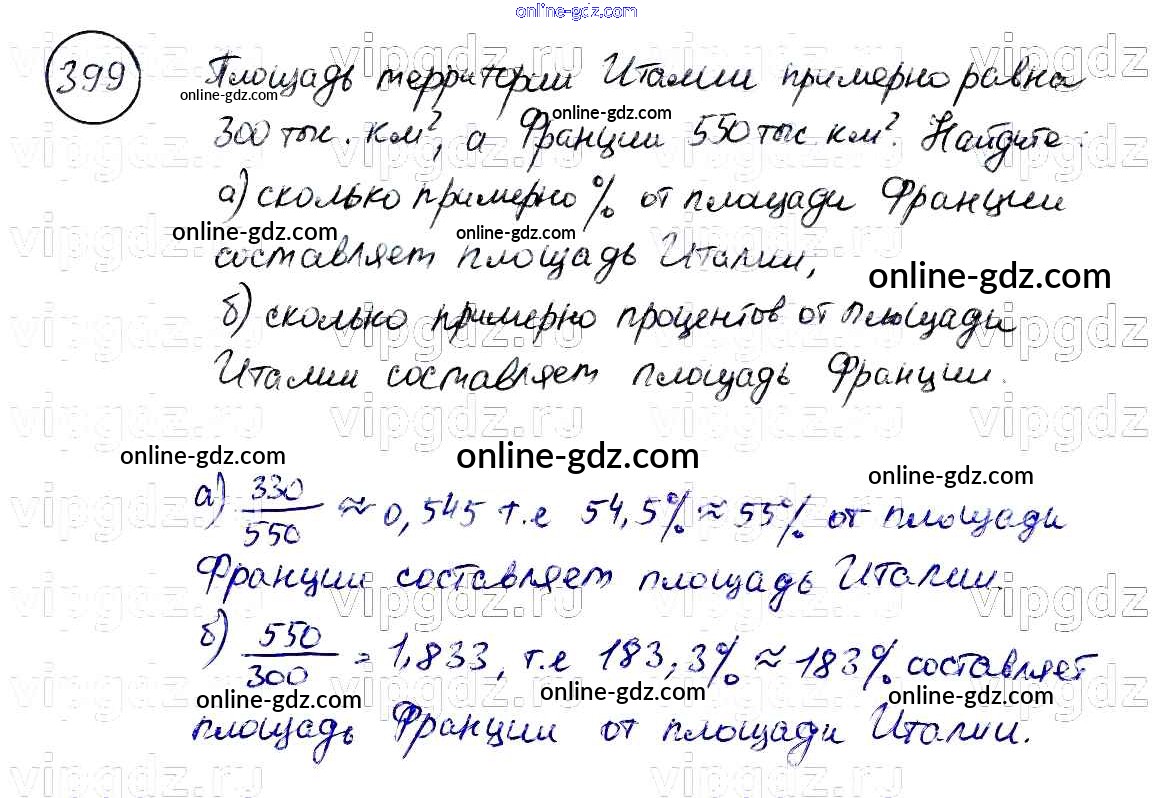 online-gdz.com
399 Площадь территории Италии примерно равна
online-gdz.com online-gdz.com
300 тыс. км², а Франции 550 тыс км². Найдите:
а) сколько примерно % от площади Франции
online-gdz.com online-gdz.com
составляет площадь Италии,
online-gdz.com
б) сколько примерно процентов от площади
Италии составляет площадь Франции.
online-gdz.com online-gdz.com online-gdz.com
а) 330/550 ≈ 0,545 т.е 54,5% ≈ 55% от площади
Франции составляет площадь Италии.
б) 550/300 = 1,833, т.е 183,3% ≈ 183% составляет
online-gdz.com online-gdz.com online-gdz.com
площадь Франции от площади Италии.
vipgdz.ru vipgdz.ru vipgdz.ru vipgdz